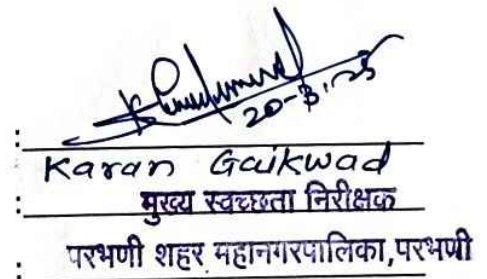 20-3-25
: Karan Gaikwad
: मुख्य स्वच्छता निरीक्षक
परभणी शहर महानगरपालिका,परभणी
: